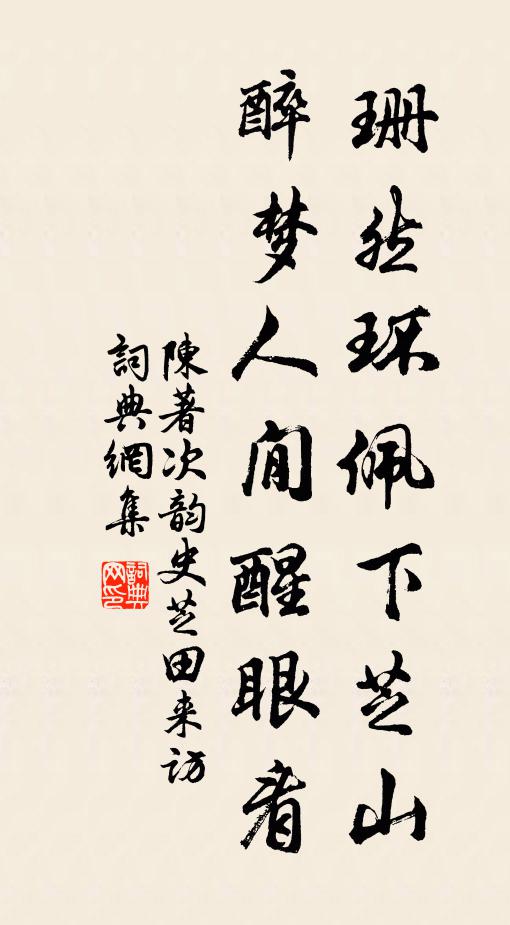 珊然环佩下芝山
醉梦人间醒眼看
陳著次韵史芝田来访
詞典網集
詞典网印